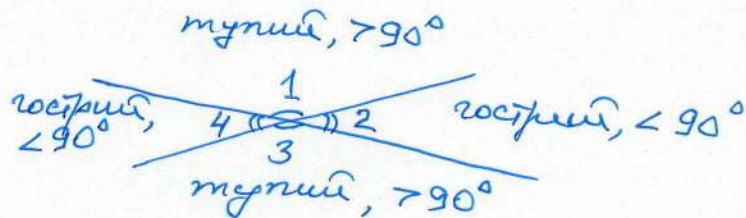 тупий, >90°
1
гострий,
<90°
4
2
гострий, < 90°
3
тупий, >90°